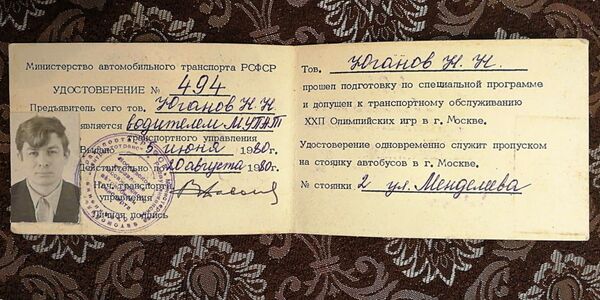 Министерство автомобильного транспорта РСФСР
УДОСТОВЕРЕНИЕ № 494
Предъявитель сего тов. Юганов Н. Н.
является водителем
транспортного управления
Выдано 5 июня 1980г.
Действительно по 20 августа 1980г.
Нач. транспортн.
управления
Личная подпись
Тов. Юганов Н. Н.
прошел подготовку по специальной программе
и допущен к транспортному обслуживанию
XXII Олимпийских игр в г. Москве.
Удостоверение одновременно служит пропуском
на стоянку автобусов в г. Москве.
№ стоянки 2 ул. Менделеева